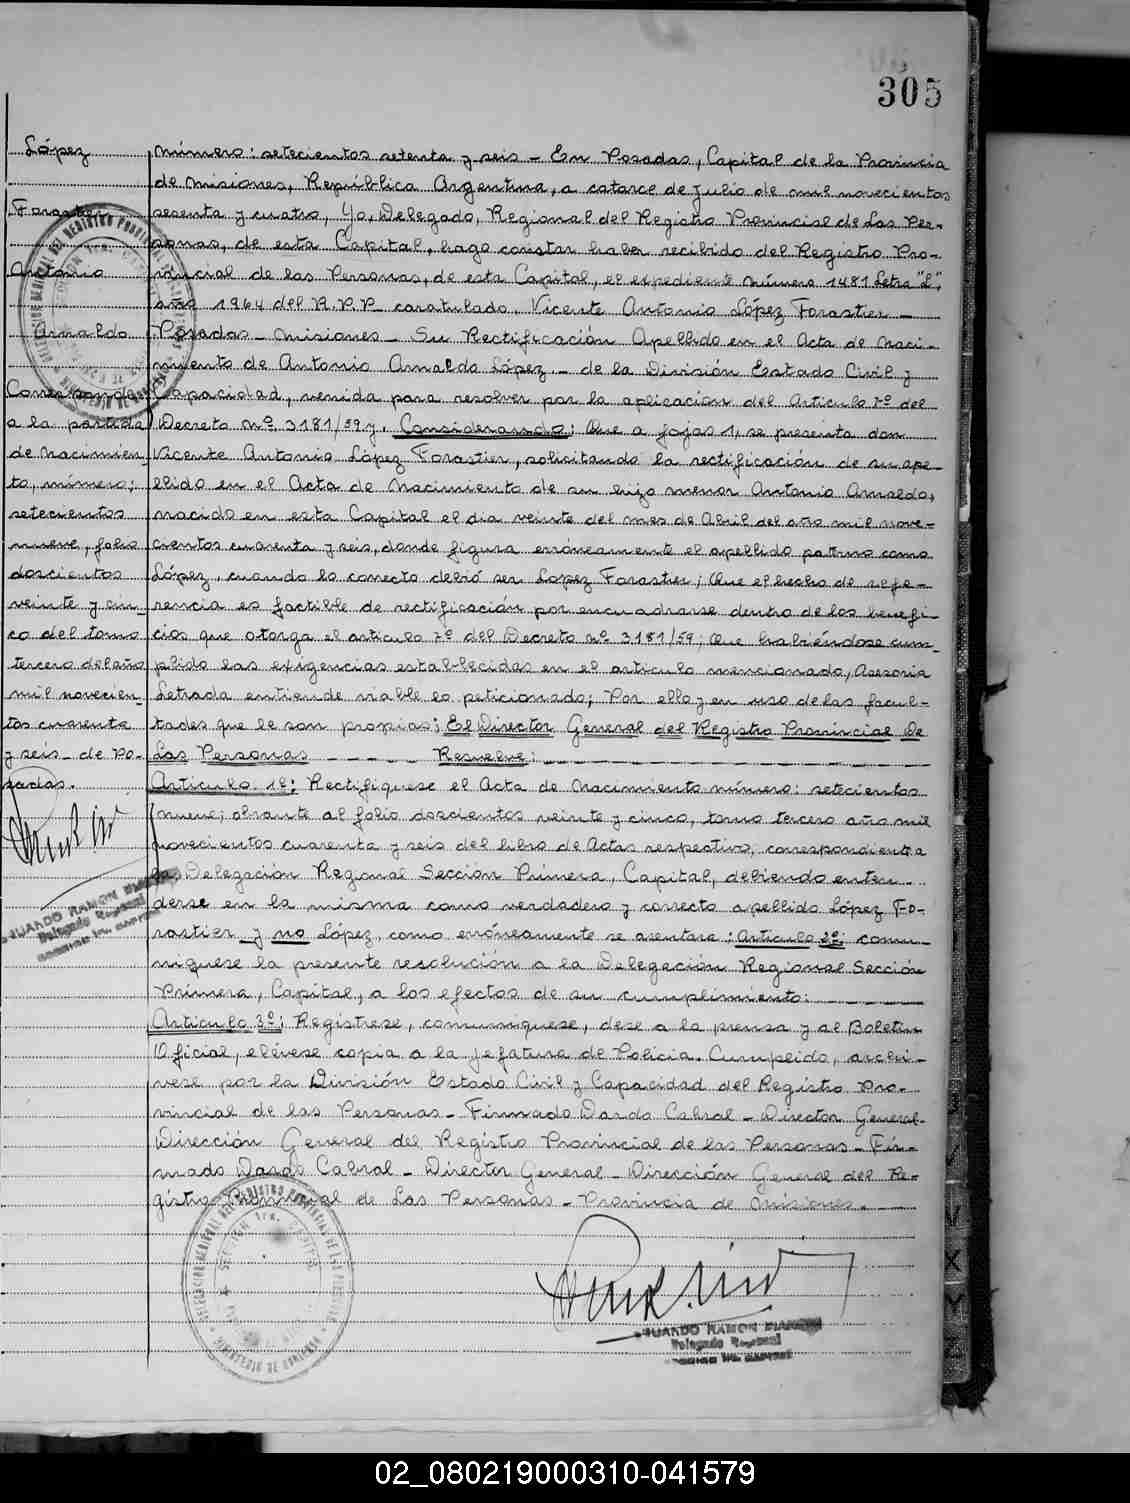 305
López
Forastier
Antonio
Arnaldo
Corresponde
a la partida
de nacimien-
to, número;
setecientos
nueve, folio
doscientos
veinte y cin
co del tomo
tercero del año
mil novecien-
tos cuarenta
y seis de Po-
sadas.
EDUARDO RAMON
Delegado Regional
número: setecientos setenta y seis - En Posadas, Capital de la Provincia
de Misiones, República Argentina, a catorce de Julio de mil novecientos
sesenta y cuatro, Yo, Delegado, Regional del Registro Provincial de Las Per-
sonas, de esta Capital, hago constar haber recibido del Registro Pro-
vincial de las Personas, de esta Capital, el expediente número 1481 Letra "L",
año 1964 del R.P.P. caratulado. Vicente Antonio López Forastier -
Posadas - Misiones - Su Rectificación Apellido en el Acta de Naci-
miento de Antonio Arnaldo López. - de la División Estado Civil y
Capacidad, venida para resolver por la aplicación del Articulo 7º del
Decreto nº 3181/59 y. Considerando: Que a fojas 1, se presenta don
Vicente Antonio López Forastier, solicitando la rectificación de su ape-
llido en el Acta de Nacimiento de su hijo menor Antonio Arnaldo,
nacido en esta Capital el dia veinte del mes de Abril del año mil nove-
cientos cuarenta y seis, donde figura erróneamente el apellido paterno como
López, cuando lo correcto debió ser Lopez Forastier; Que el hecho de refe-
rencia es factible de rectificación por encuadrarse dentro de los benefi
cios que otorga el articulo 7º del Decreto nº 3181/59; Que habiéndose cum-
plido las exigencias establecidas en el articulo mencionado, Asesoria
Letrada entiende viable lo peticionado; Por ello y en uso de las facul-
tades que le son propias; El Director General del Registro Provincial De
Las Personas Resuelve:
Articulo 1º: Rectifiquese el Acta de Nacimiento número: setecientos
nueve; obrante al folio doscientos veinte y cinco, tomo tercero año mil
novecientos cuarenta y seis del libro de Actas respectivo, correspondiente a
la Delegación Regional Sección Primera, Capital, debiendo enten-
derse en la misma como verdadero y correcto apellido López Fo-
rastier y no López, como erróneamente se asentara; Articulo 2º: comu-
niquese la presente resolución a la Delegación Regional Sección
Primera, Capital, a los efectos de su cumplimiento:
Articulo 3º: Registrese, comuniquese, dese a la prensa y al Boletin
Oficial, elévese copia a la Jefatura de Policia. Cumplido, archi-
vese por la División Estado Civil y Capacidad del Registro Pro-
vincial de las Personas - Firmado Dardo Cabral - Director General-
Dirección General del Registro Provincial de las Personas - Fir-
mado Dardo Cabral - Director General - Dirección General del Re-
gistro Provincial de Las Personas - Provincia de Misiones. -
EDUARDO RAMON
Delegado Regional
02_080219000310-041579